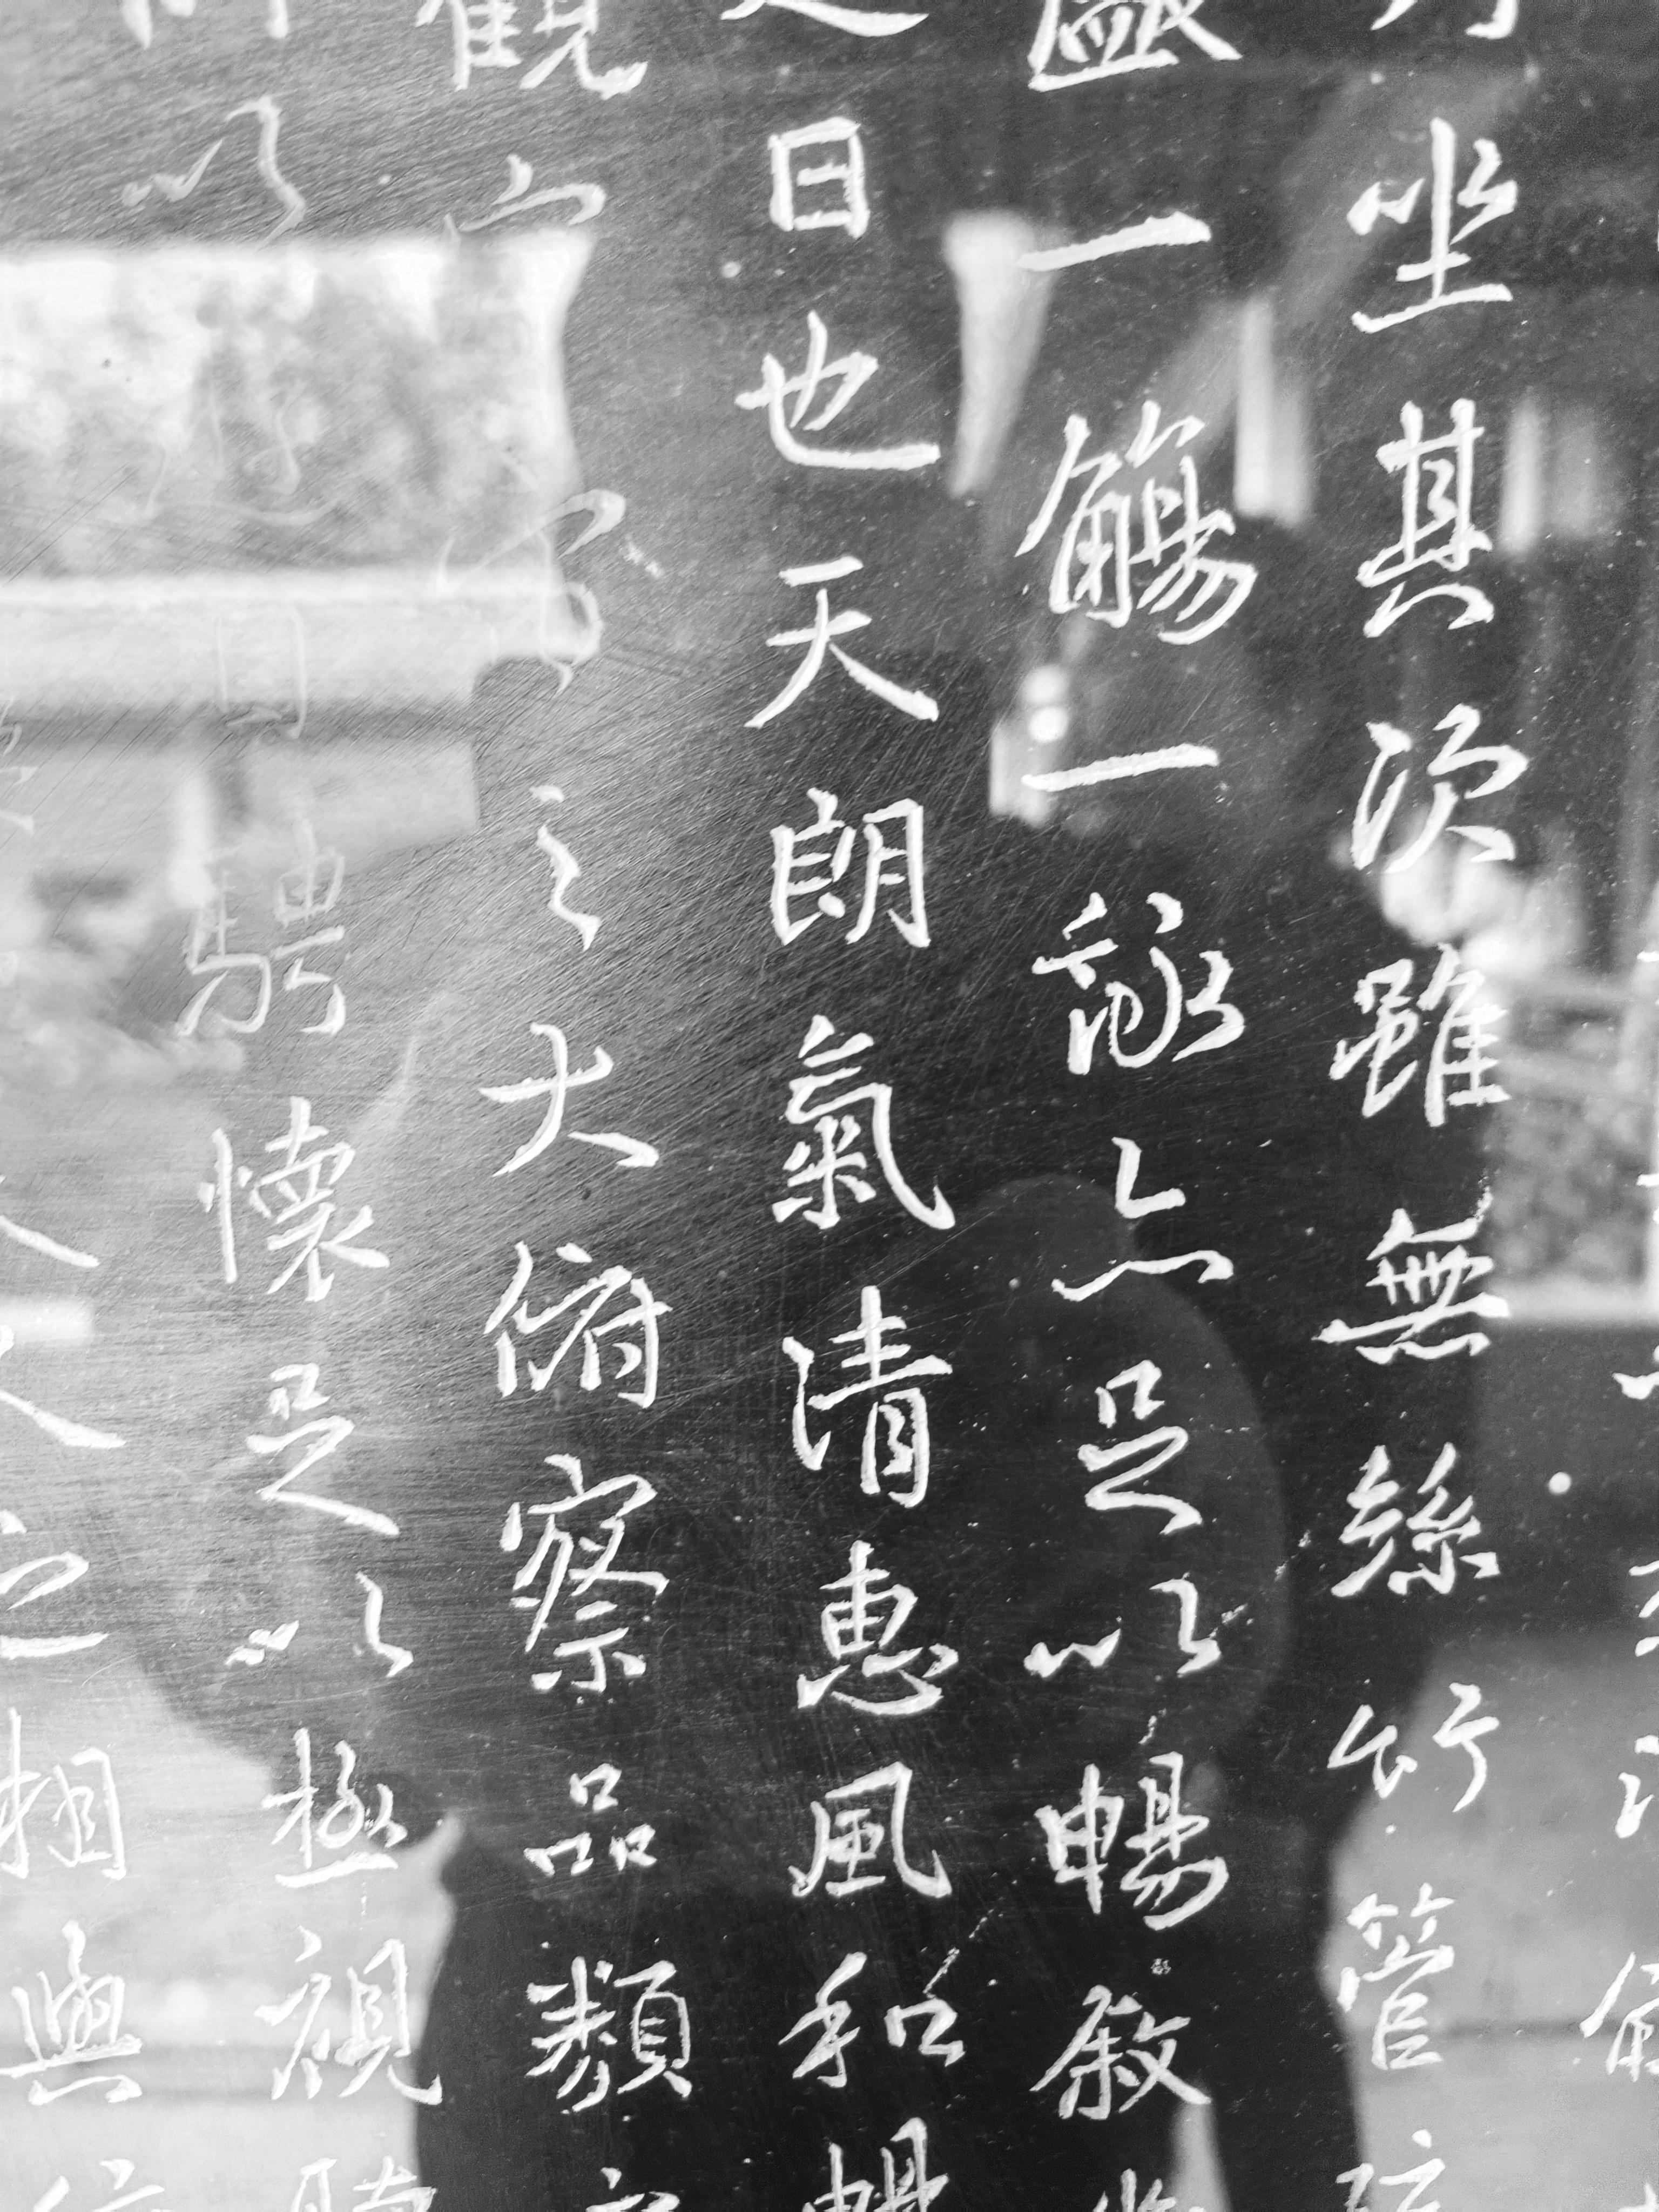 坐其次雖無絲竹管
盛一觴一詠亦足以暢敘
是日也天朗氣清惠風和暢
觀宇宙之大俯察品類
以遊目騁懷足以極視聽
之相與